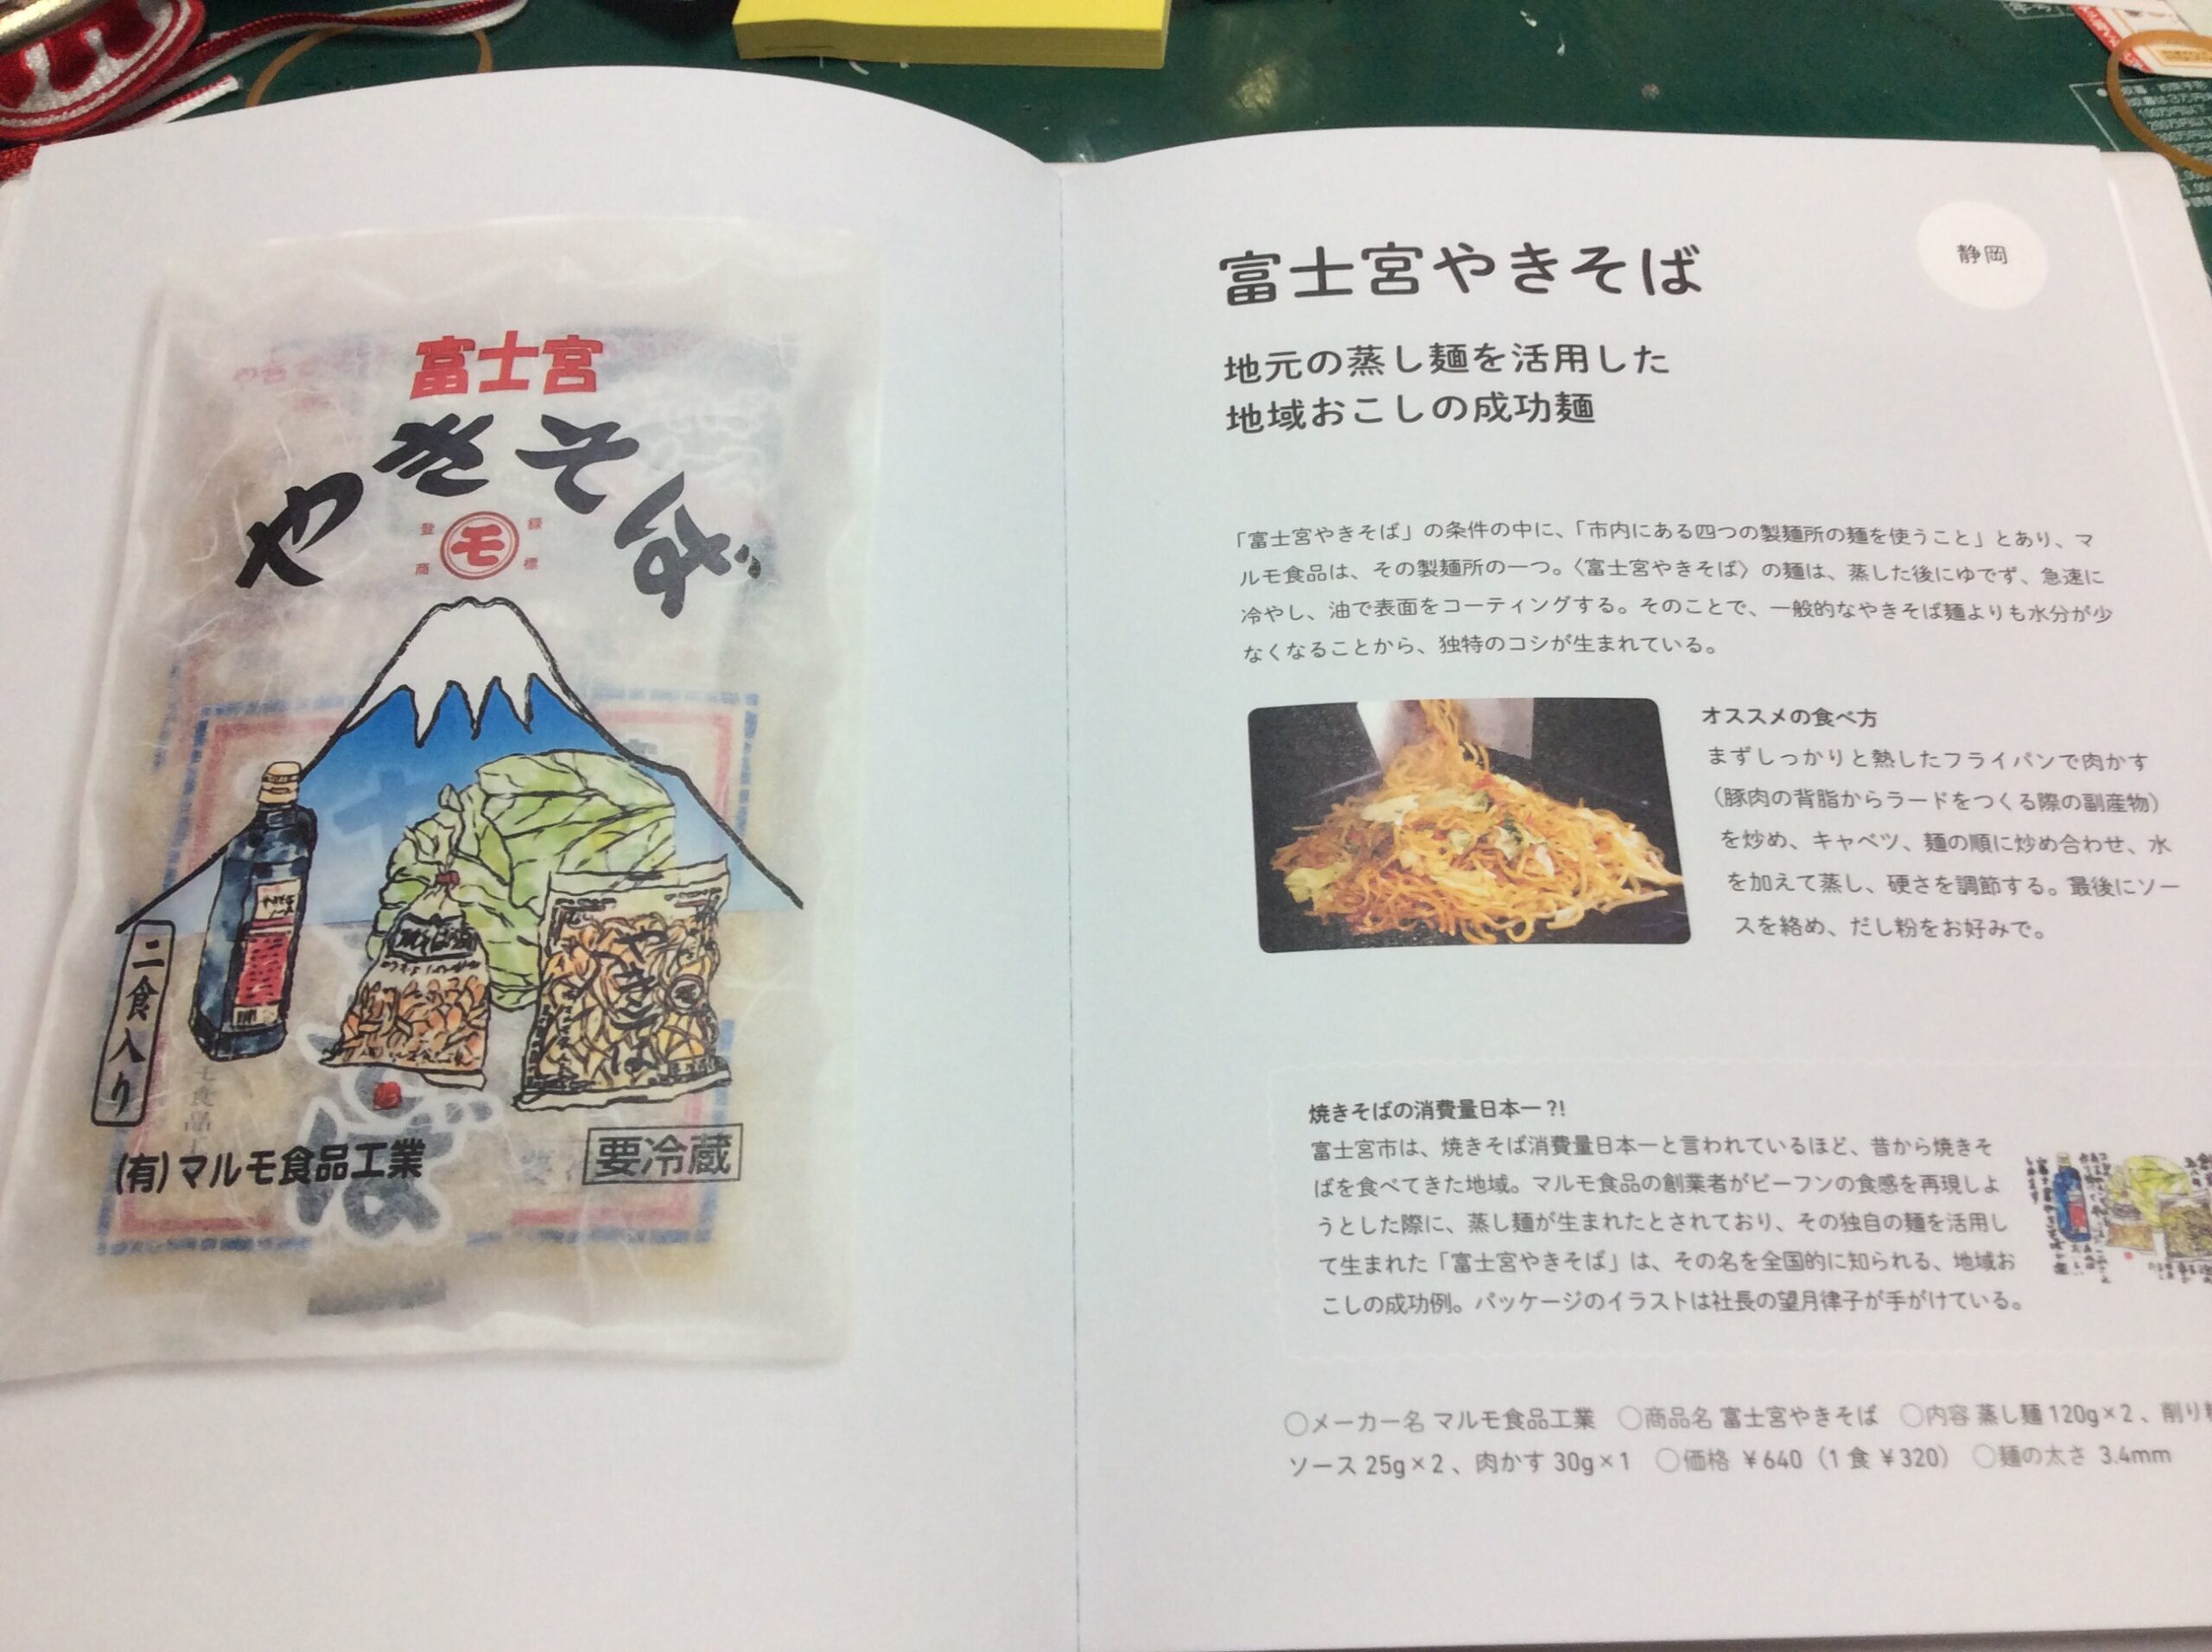 富士宮
やきそば
登録
モ
商標
二食入り
(有)マルモ食品工業
要冷蔵
静岡
富士宮やきそば
地元の蒸し麺を活用した
地域おこしの成功麺
「富士宮やきそば」の条件の中に、「市内にある四つの製麺所の麺を使うこと」とあり、マ
ルモ食品は、その製麺所の一つ。〈富士宮やきそば〉の麺は、蒸した後にゆでず、急速に
冷やし、油で表面をコーティングする。そのことで、一般的なやきそば麺よりも水分が少
なくなることから、独特のコシが生まれている。
オススメの食べ方
まずしっかりと熱したフライパンで肉かす
(豚肉の背脂からラードをつくる際の副産物)
を炒め、キャベツ、麺の順に炒め合わせ、水
を加えて蒸し、硬さを調節する。最後にソー
スを絡め、だし粉をお好みで。
焼きそばの消費量日本一?!
富士宮市は、焼きそば消費量日本一と言われているほど、昔から焼きそ
ばを食べてきた地域。マルモ食品の創業者がビーフンの食感を再現しよ
うとした際に、蒸し麺が生まれたとされており、その独自の麺を活用し
て生まれた「富士宮やきそば」は、その名を全国的に知られる、地域お
こしの成功例。パッケージのイラストは社長の望月律子が手がけている。
○メーカー名 マルモ食品工業 ○商品名 富士宮やきそば ○内容 蒸し麺 120g×2、削り
ソース 25g×2、肉かす 30g×1 ○価格 ¥640(1食¥320) ○麺の太さ 3.4mm